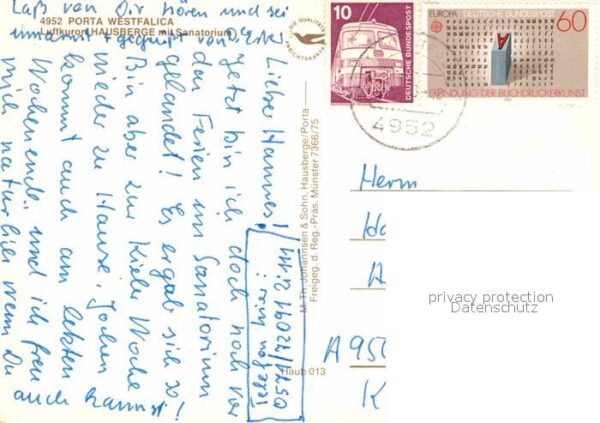 4952 PORTA WESTFALICA
Luftkurort HAUSBERGE mit Sanatorium
DIE QUALITÄTS
ANSICHTSKARTE
Lieber Hannes!
Jetzt bin ich doch noch vor
den Ferien im Sanatorium
gelandet! Es ergab sich so!
Bin aber zur Kieler Woche
wieder zu Hause. Jochen
kommt auch am letzten
Wochenende und ich freu
mich natürlich wenn Du
auch kannst!
Laß von Dir hören und sei
umarmt + gegrüßt von
M. Th. Johannsen & Sohn, Hausberge/Porta
Freigeg. d. Reg.-Präs. Münster 7366/75
Haub 013
10
DEUTSCHE BUNDESPOST
EUROPA DEUTSCHE BUNDESPOST
60
ERFINDUNG DER BUCHDRUCKERKUNST
4952
Herrn
A
A 950
K
privacy protection
Datenschutz